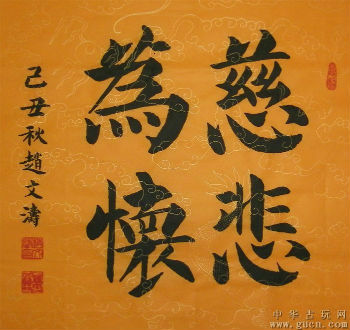 慈悲
為懷
己丑秋趙文濤
中华古玩网
www.gucn.com